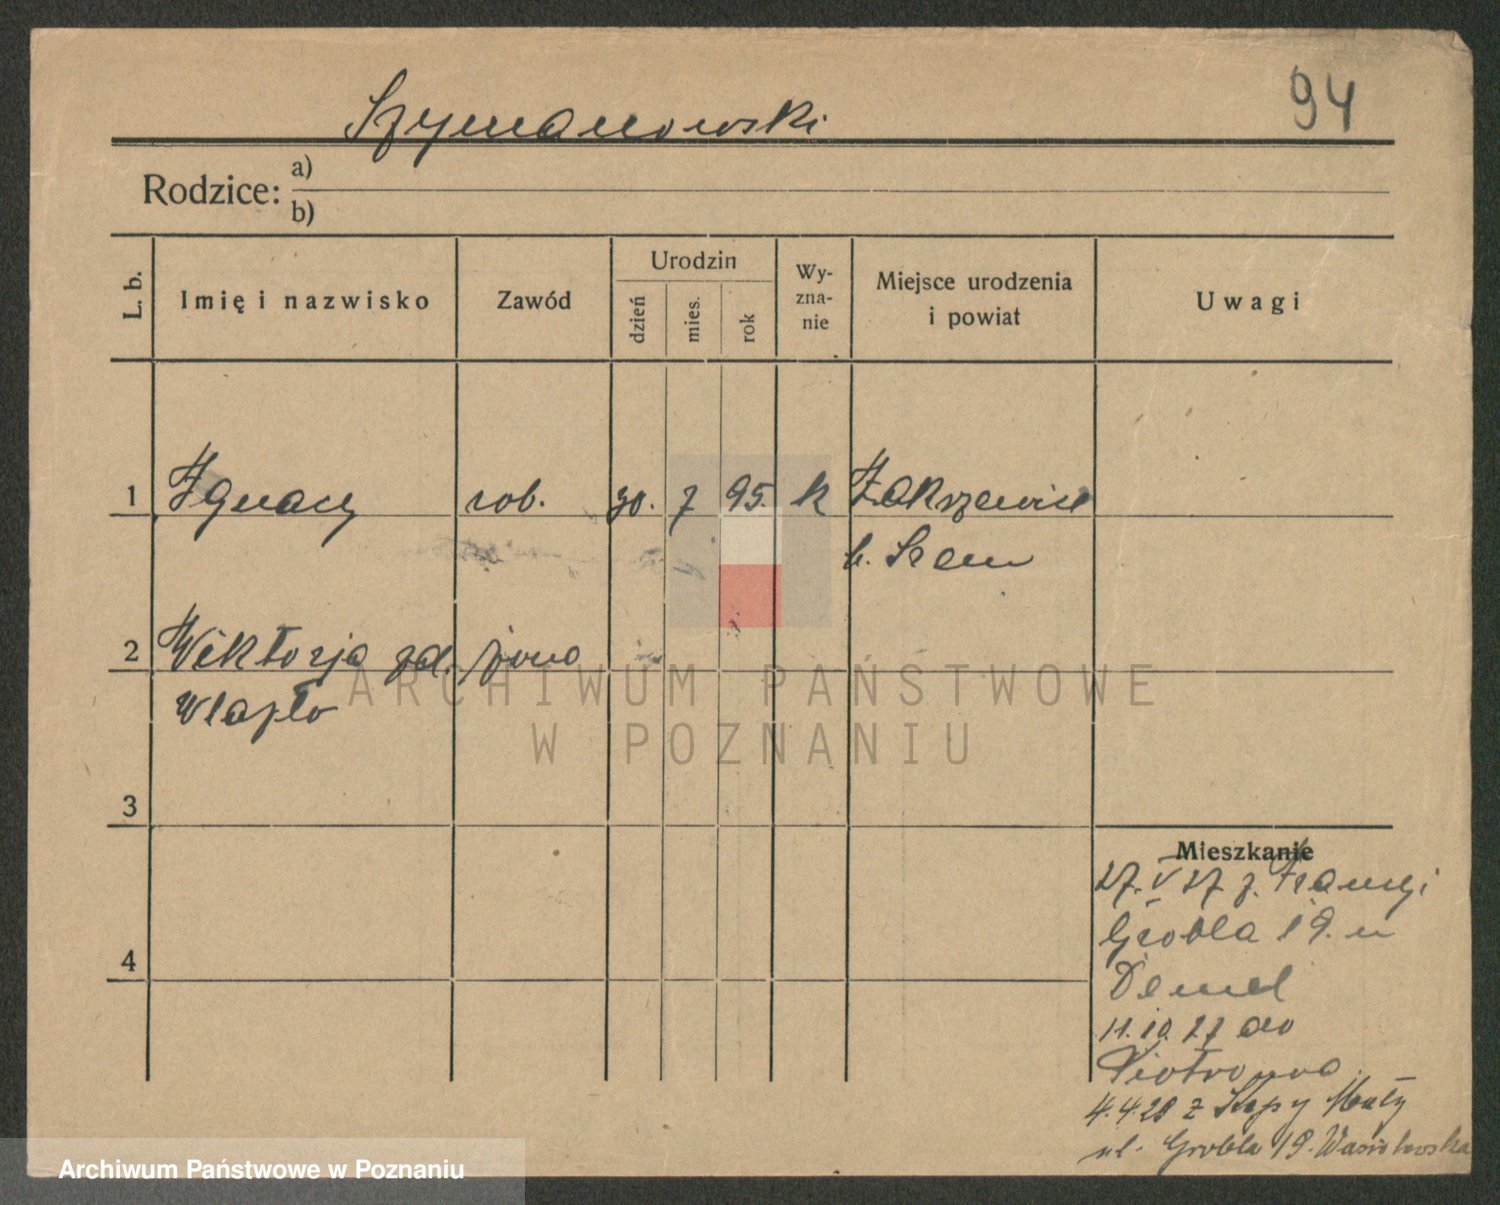 Szymanowski
94
Rodzice: a)
b)
L. b.
Imię i nazwisko
Zawód
Urodzin
dzień
mies.
rok
Wy-
zna-
nie
Miejsce urodzenia
i powiat
Uwagi
1 Ignacy rob. 30. 7 95. k Zakrzewice
b. Śrem
2 Wiktorja zd. żona
Wlazło
ARCHIWUM PAŃSTWOWE
W POZNANIU
3
4
Mieszkanie
27. V 27 z Francji
Grobla 19. u
Demel
11.10.27 do
Piotrowa
4.4.28 z Kępy Małej
ul. Grobla 19.
Archiwum Państwowe w Poznaniu